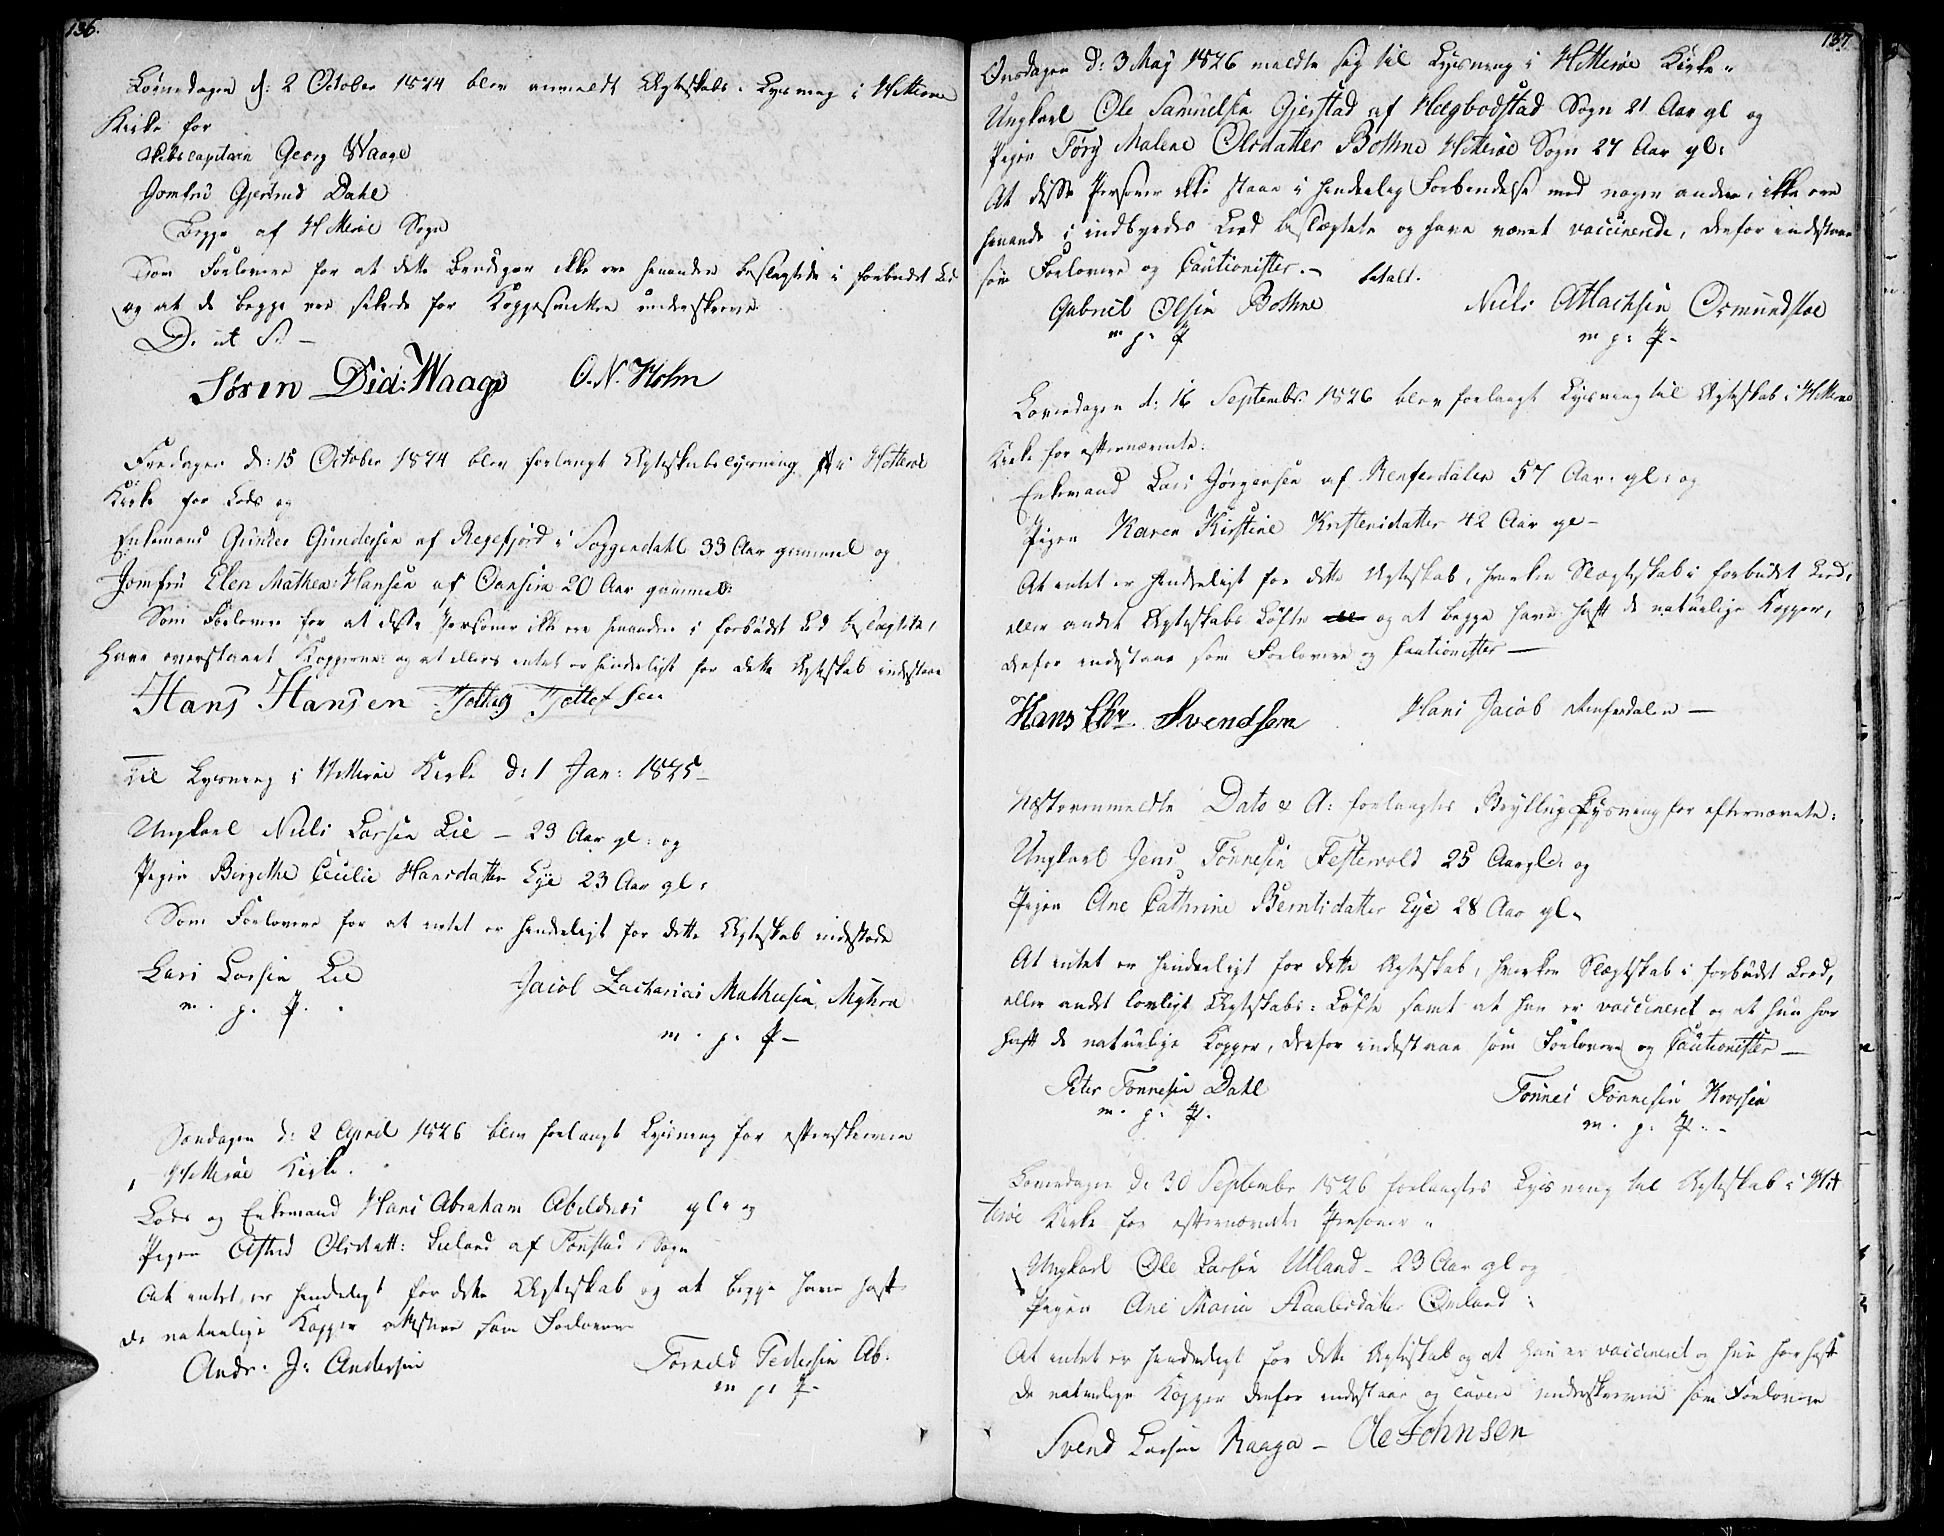 136.
Løverdagen d: 2 October 1824 blev anmeldt Ægteskabs-Lysning i Hitterøe
Kirke for
Skibscapitain Georg Waage
Jomfru Gjertrud Dahl
Begge af Hitterøe Sogn
Som Forlovere for at dette Brudepar ikke ere hinanden beslægtede i forbudet Led
og at de begge ere sikrede for Koppesmitten underskrive
D. ut S. –
Søren Did: Waage O. N. Holm
Fredagen d: 15 October 1824 blev forlangt Ægteskabslysning i Hitterøe
Kirke for Lods og
Enkemand Gunder Gundersen af Regefjord i Soggendahl 33 Aar gammel og
Jomfru Elen Mathea Hansen af 20 Aar gammel:
Som Forlovere for at disse Personer ikke ere hinanden i forbudet Led beslægtede,
have overstaaet Kopperne og at ellers intet er hinderligt for dette Ægteskab indestaae
Hans Hansen Tollef Tollefsen
Til Lysning i Hitterøe Kirke d: 1 Jan: 1825 –
Ungkarl Niels Larsen Lie – 23 Aar gl: og
Pigen Birgithe Cecilie Hansdatter Eye 23 Aar gl:
Som Forlovere for at intet er hinderligt for dette Ægteskab indestode
Lars Larsen Lie Jacob Zacharias Mathiesen Myhra
m. p. P. m. p. P –
Søndagen d: 2 April 1826 blev forlangt Lysning for efterskrevne
i Hitterøe Kirke.
Lods og Enkemand Hans Abraham Abeldnes gl: og
Pigen Astrid Olsdatt: Lieland af Tonstad Sogn
At intet er hinderligt for dette Ægteskab og at begge have haft
de naturlige Kopper attestere som Forlovere
Andr. J: Andersen Tarald Pedersen Ab.
m p: P –
137
Onsdagen d: 3 May 1826 meldte sig til Lysning i Hitterøe Kirke.
Ungkarl Ole Samuelsen Gjerstad af Hægbodstad Sogn 21 Aar gl og
Pigen Tørg Malene Olsdatter Bothne Hitterøe Sogn 27 Aar gl:
At disse Personer ikke staae i hinderlig Forbindelse med nogen anden, ikke ere
hinande i indbyrdes Led beslægtede og have været vaccinerede, derfor indestaae
som Forlovere og Cautionister. – betalt.
Gabriel Olsen Bothne Niels Atlachsen Osmundstøe
m p: P m p: P –
Løverdagen d: 16 Septembr: 1826 blev forlangt Lysning til Ægteskab i Hitterøe
Kirke for efternævnte:
Enkemand Lars Jørgensen af Renfesdalen 57 Aar gl: og
Pigen Karen Kirstine Kristensdatter 42 Aar gl –
At intet er hinderligt for dette Ægteskab, hverken Slægteskab i forbudet Led,
eller andet Ægteskabs Løfte og at begge have haft de naturlige Kopper,
derfor indestaae som Forlovere og Cautionister –
Hans Chr. Svendsen Hans Jacob Renfesdalen –
Næstovenmeldte Dato & A: forlangtes Bryllups Lysning for efternævnte:
Ungkarl Jens Tønnesen Festervold 25 Aar gl: og
Pigen Ane Cathrine Berntsdatter Eye 28 Aar gl.
At intet er hinderligt for dette Ægteskab, hverken Slægtskab i forbudet Led,
eller andet lovligt Ægteskabs: Løfte samt at han er vaccineret og at hun har
haft de naturlige Kopper, derfor indestaae som Forlovere og Cautionister –
Peter Tønnesen Dahl Tønnes Tønnesen
m. p: P. m. p: P. –
Løverdagen d: 30 Septembr 1826 forlangtes Lysning til Ægteskab i Hit
terøe Kirke for efternævnte Personer.
Ungkarl Ole Larsen Ulland – 23 Aar gl og
Pigen Ane Maria Omland:
At intet er hinderligt for dette Ægteskab og at han er vaccineret og hun har haft
de naturlige Kopper derfor indestaae og cavere underskrevne som Forlovere
Svend Larsen Raaga – Ole Johnsen